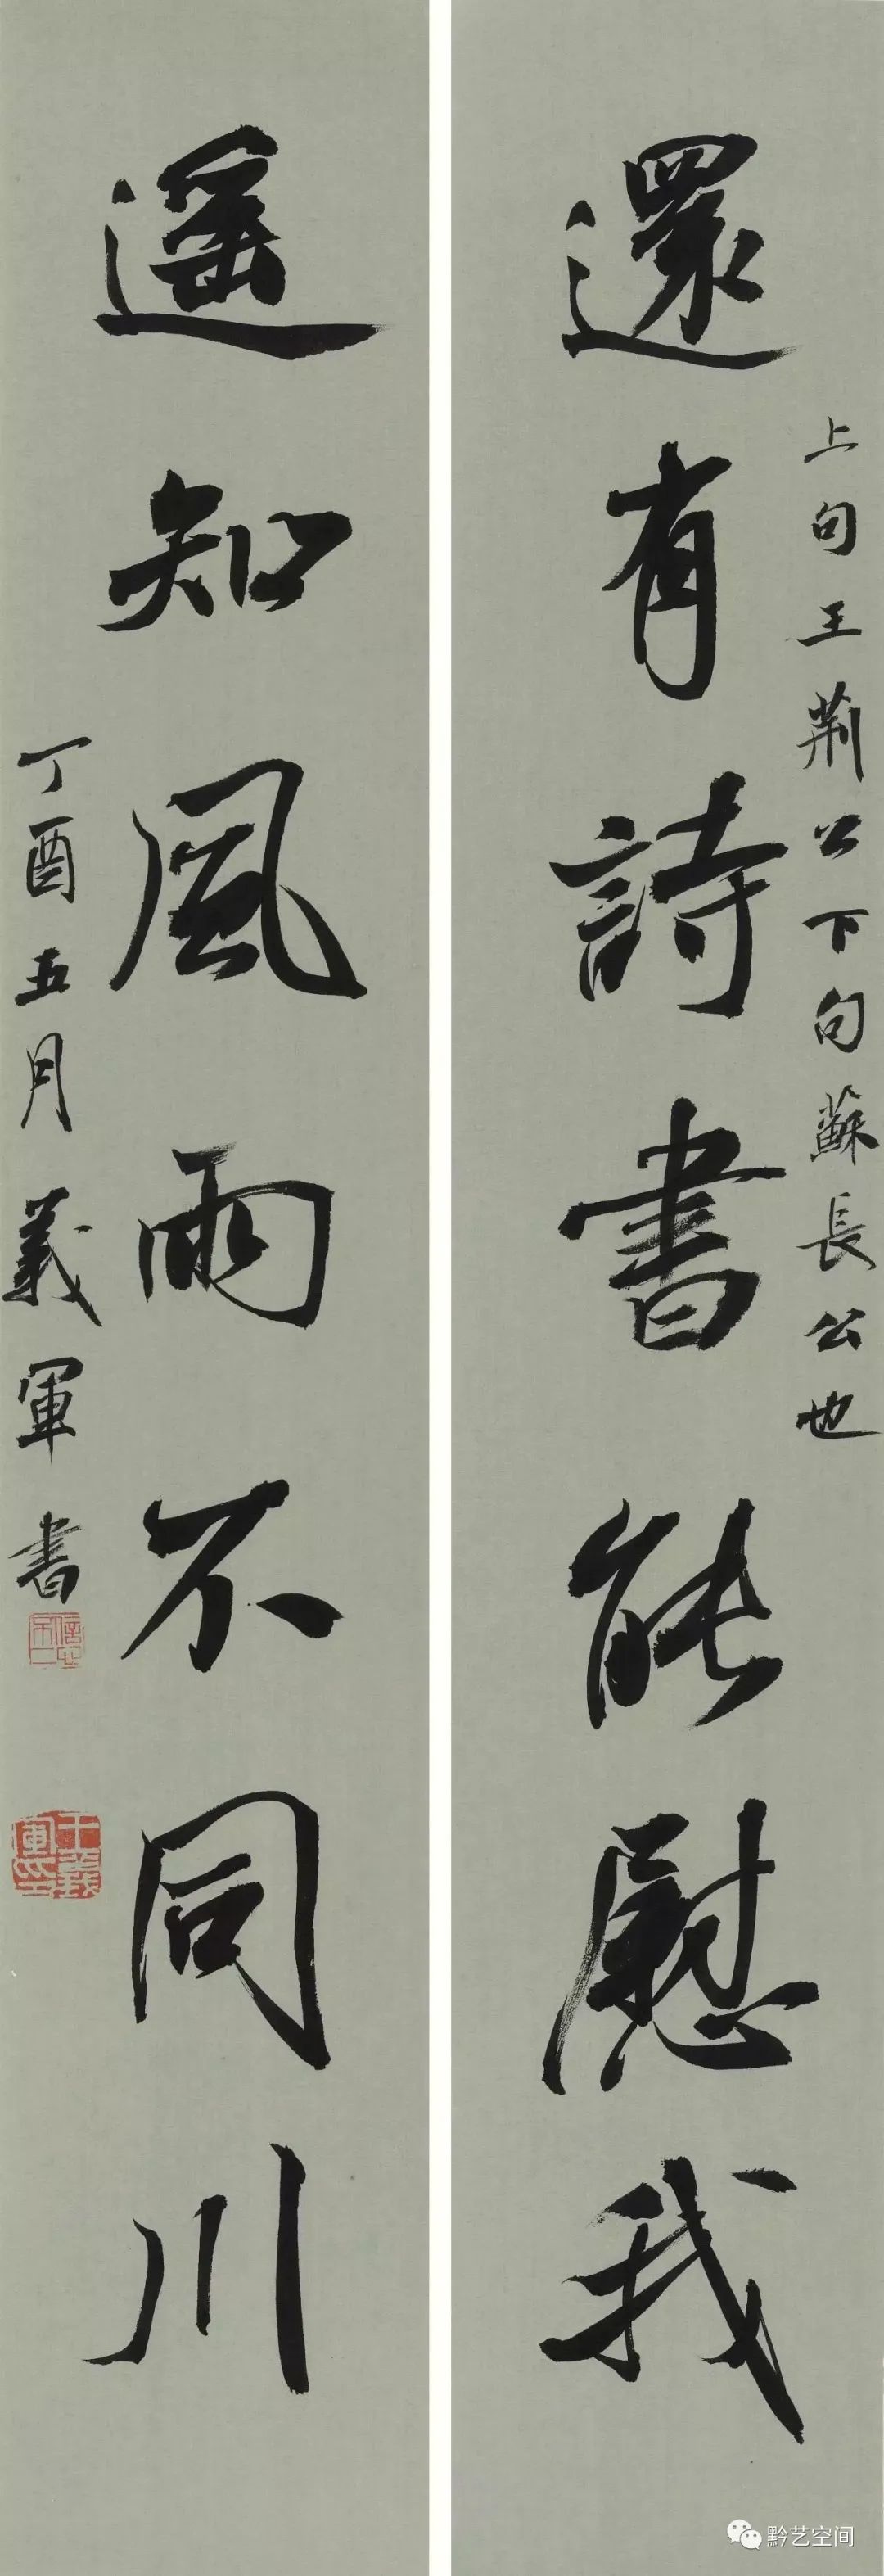 還有詩書能慰我
上句王荆公下句蘇長公也
遥知風雨不同川
丁酉五月義軍書
王義軍印
黔艺空间